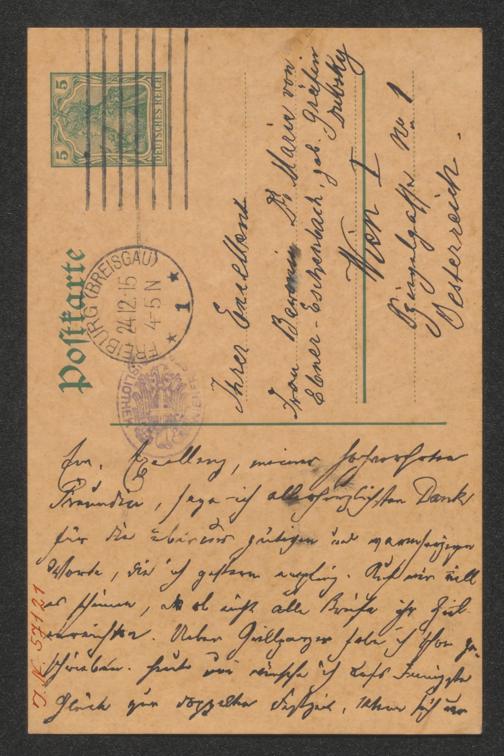 5
DEUTSCHES REICH
5
Postkarte
FREIBURG (BREISGAU)
24.12.15
4-5 N
* 1 *
Ihrer Excellenz
Frau Baronin Dr Marie von
Ebner-Eschenbach, geb. Gräfin
Dubsky
Wien I
Spiegelgasse No 1
Oesterreich.
Ew. Excellenz, meiner hochverehrten
Freundin, sage ich allerherzlichsten Dank
für die überaus gütigen und warmherzigen
Worte, die ich gestern empfing. Fast mir will
es scheinen, als ob nicht alle Briefe ihr Ziel
erreichten. Ueber Grillparzer habe ich schon ge-
schrieben. Heute nur wünsche ich aufs Innigste
Glück zum doppelten Festtag,
J.N. 57121